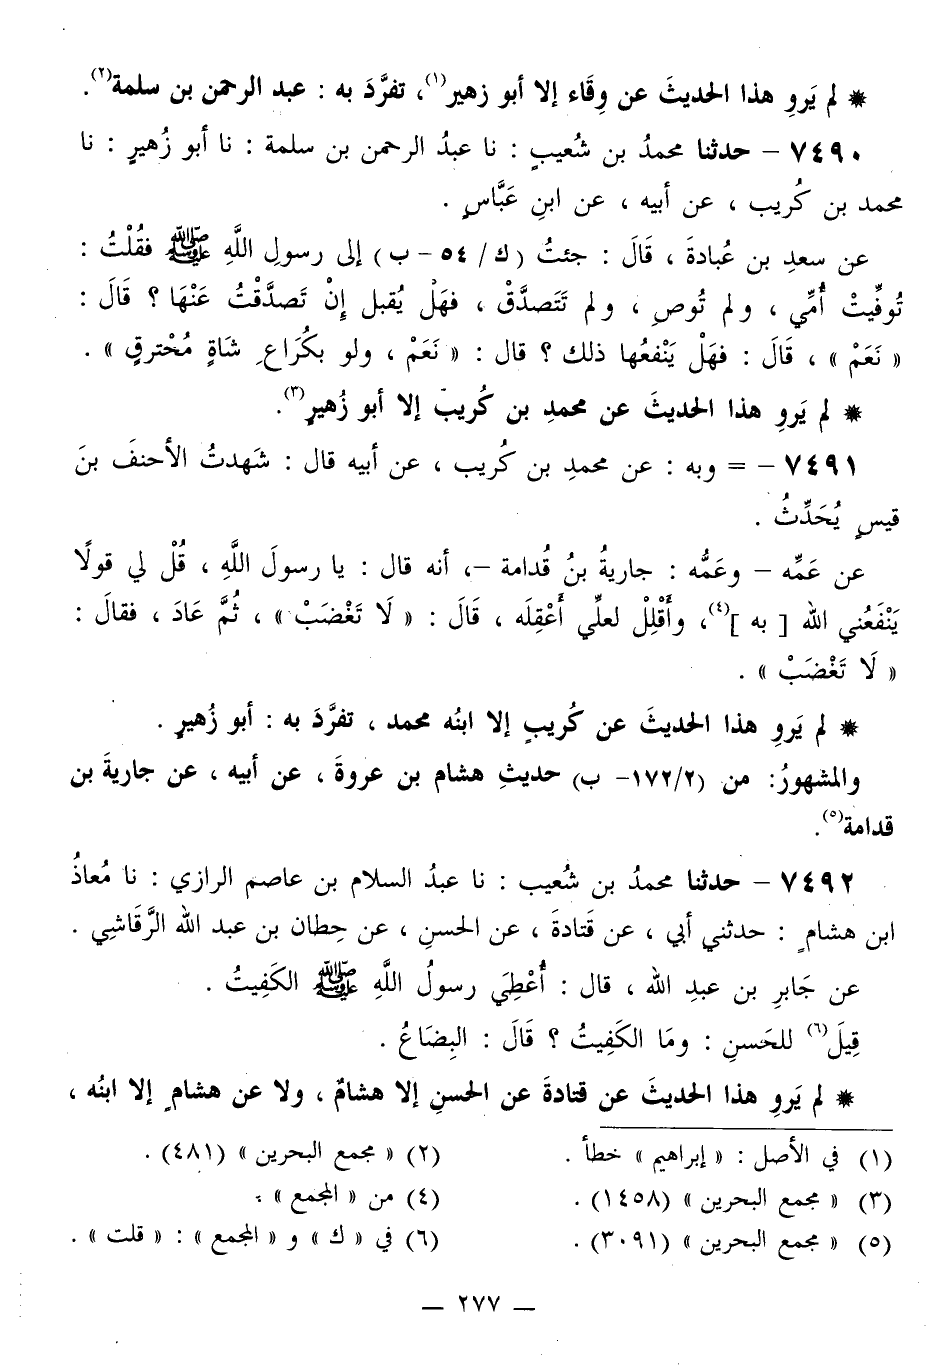 * لم يَروِ هذا الحديثَ عن وِقَاء إلا أبو زهير(١)، تفرَّدَ به : عبد الرحمن بن سلمة(٢).
٧٤٩٠ – حدثنا محمدُ بن شُعيبٍ : نا عبدُ الرحمن بن سلمة : نا أبو زُهيرٍ : نا
محمد بن كُريب ، عن أبيه ، عن ابنِ عَبَّاسٍ .
عن سعدِ بن عُبادةَ ، قَالَ : جئتُ (ك/ ٥٤ – ب) إلى رسولِ اللَّهِ ﷺ فقُلْتُ :
تُوفِّيتْ أُمِّي ، ولم تُوصِ ، ولم تَتَصدَّقْ ، فهَلْ يُقبل إِنْ تَصدَّقْتُ عَنْهَا ؟ قَالَ :
« نَعَمْ » ، قَالَ : فهَلْ يَنْفعُها ذلك ؟ قال : « نَعَمْ ، ولو بكُرَاعِ شَاةٍ مُحْترقٍ » .
* لم يَروِ هذا الحديثَ عن محمدِ بن كُريبٍ إلا أبو زُهيرٍ(٣).
٧٤٩١ – = وبه : عن محمدِ بن كُريب ، عن أبيه قال : شَهدتُ الأحنفَ بنَ
قيسٍ يُحَدِّثُ .
عن عَمِّه – وعَمُّه : جاريةُ بنُ قُدامة –، أنه قال : يا رسولَ اللَّهِ ، قُلْ لي قولًا
يَنْفَعُني الله [ به ](٤)، وأَقْلِلْ لعلِّي أَعْقِلَه ، قَالَ : « لَا تَغْضَبْ » ، ثُمَّ عَادَ ، فقالَ :
« لَا تَغْضَبْ » .
* لم يَروِ هذا الحديثَ عن كُريبٍ إلا ابنُه محمد ، تفرَّدَ به : أبو زُهيرٍ .
والمشهورُ: من (١٧٢/٢- ب) حديثِ هشام بن عروةَ ، عن أبيه ، عن جاريةَ بن
قدامة(٥).
٧٤٩٢ – حدثنا محمدُ بن شُعيب : نا عبدُ السلام بن عاصم الرازي : نا مُعاذُ
ابن هشامٍ : حدثني أبي ، عن قَتادةَ ، عن الحسنِ ، عن حِطان بن عبد الله الرَّقَاشِي .
عن جَابرِ بن عبدِ الله ، قال : أُعْطِيَ رسولُ اللَّهِ ﷺ الكَفِيتُ .
قِيلَ(٦) للحَسنِ : ومَا الكَفِيتُ ؟ قَالَ : البِضَاعُ .
* لم يَروِ هذا الحديثَ عن قتادةَ عن الحسنِ إلا هشامٌ ، ولا عن هشامٍ إلا ابنُه ،
(١) في الأصل : « إبراهيم » خطأ .
(٢) « مجمع البحرين » (٤٨١) .
(٣) « مجمع البحرين » (١٤٥٨) .
(٤) من « المجمع » .
(٥) « مجمع البحرين » (٣٠٩١) .
(٦) في « ك » و « المجمع » : « قلت » .
– ٢٧٧ –